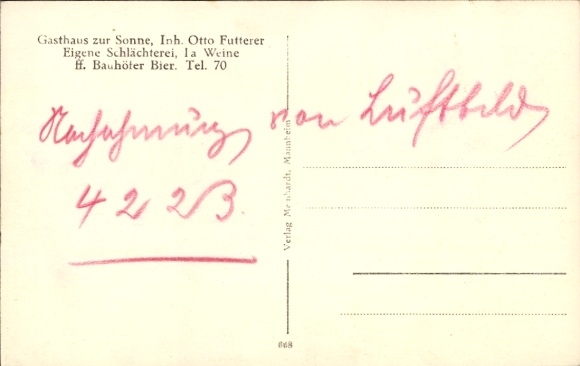 Gasthaus zur Sonne, Inh. Otto Futterer
Eigene Schlächterei, Ia Weine
ff. Bauhöfer Bier. Tel. 70
Nachahmung von Luftbild
422B
Verlag Menhardt, Mannheim
668